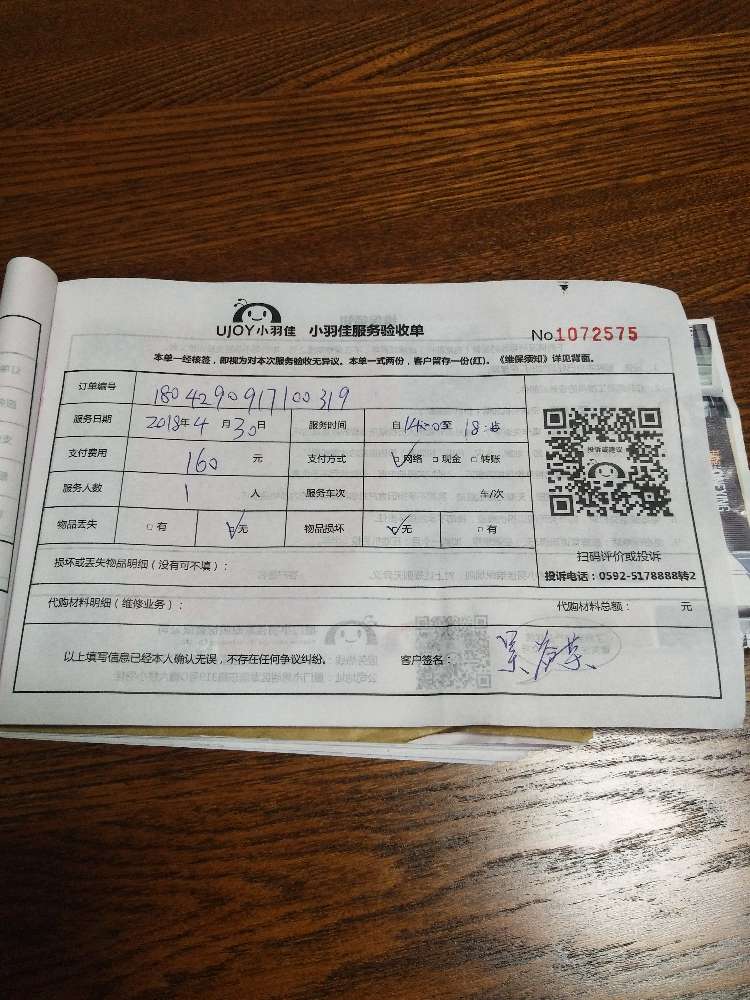 UJOY小羽佳 小羽佳服务验收单 No.1072575
本单一经核签，即视为对本次服务验收无异议。本单一式两份，客户留存一份(红)。《维保须知》详见背面。
订单编号 180429091710 0319
服务日期 2018年4月30日 服务时间 自14:00至18:
支付费用 160 元 支付方式 网络 现金 转账
服务人数 1 人 服务车次 车/次
物品丢失 有 无 物品损坏 无 有
投诉或建议
扫码评价或投诉
投诉电话：0592-5178888转2
损坏或丢失物品明细（没有可不填）：
代购材料明细（维修业务）： 代购材料总额： 元
以上填写信息已经本人确认无误，不存在任何争议纠纷。 客户签名：